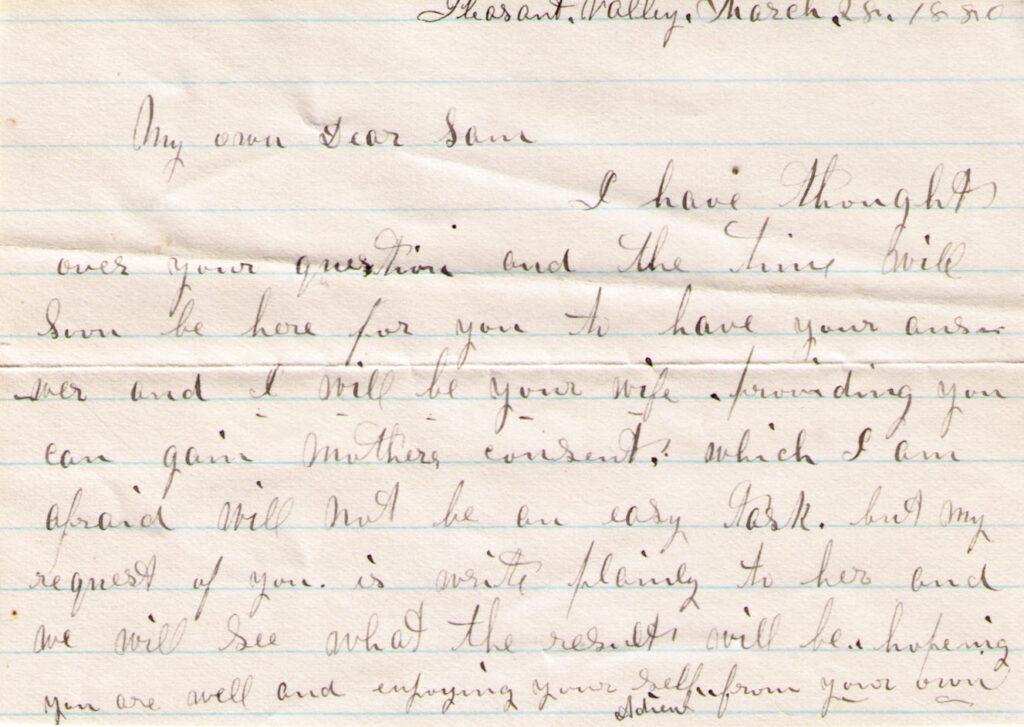 Pleasant. Valley. March. 28. 1880
My own Dear Sam
I have thought
over your question and the time will
soon be here for you to have your ans
wer and I will be your wife. providing you
can gain Mothers consent. which I am
afraid will not be an easy task. but my
request of you. is write plainly to her and
we will see what the result will be. hopeing
you are well and enjoying your self. from your own
Adieu